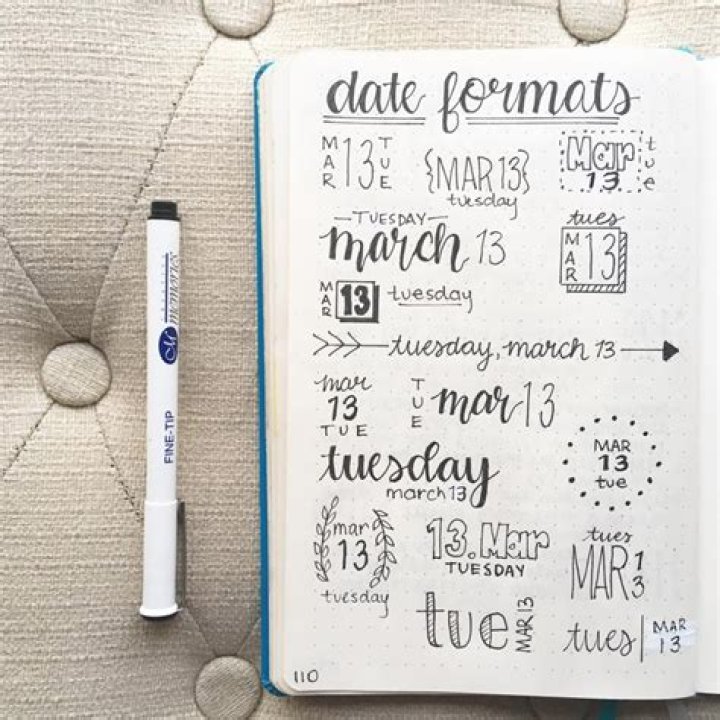 date formats
MAR 13 TUE
{MAR 13}
tuesday
Mar
13
tue
TUESDAY
march 13
tues
MAR 13
MAR 13 tuesday
tuesday, march 13
mar
13
TUE
TUE mar 13
tuesday
march 13
MAR
13
tue
mar
13
tuesday
13. Mar
TUESDAY
tues
MAR 13
tue MAR 13
tues MAR
13
110
M memories
FINE-TIP